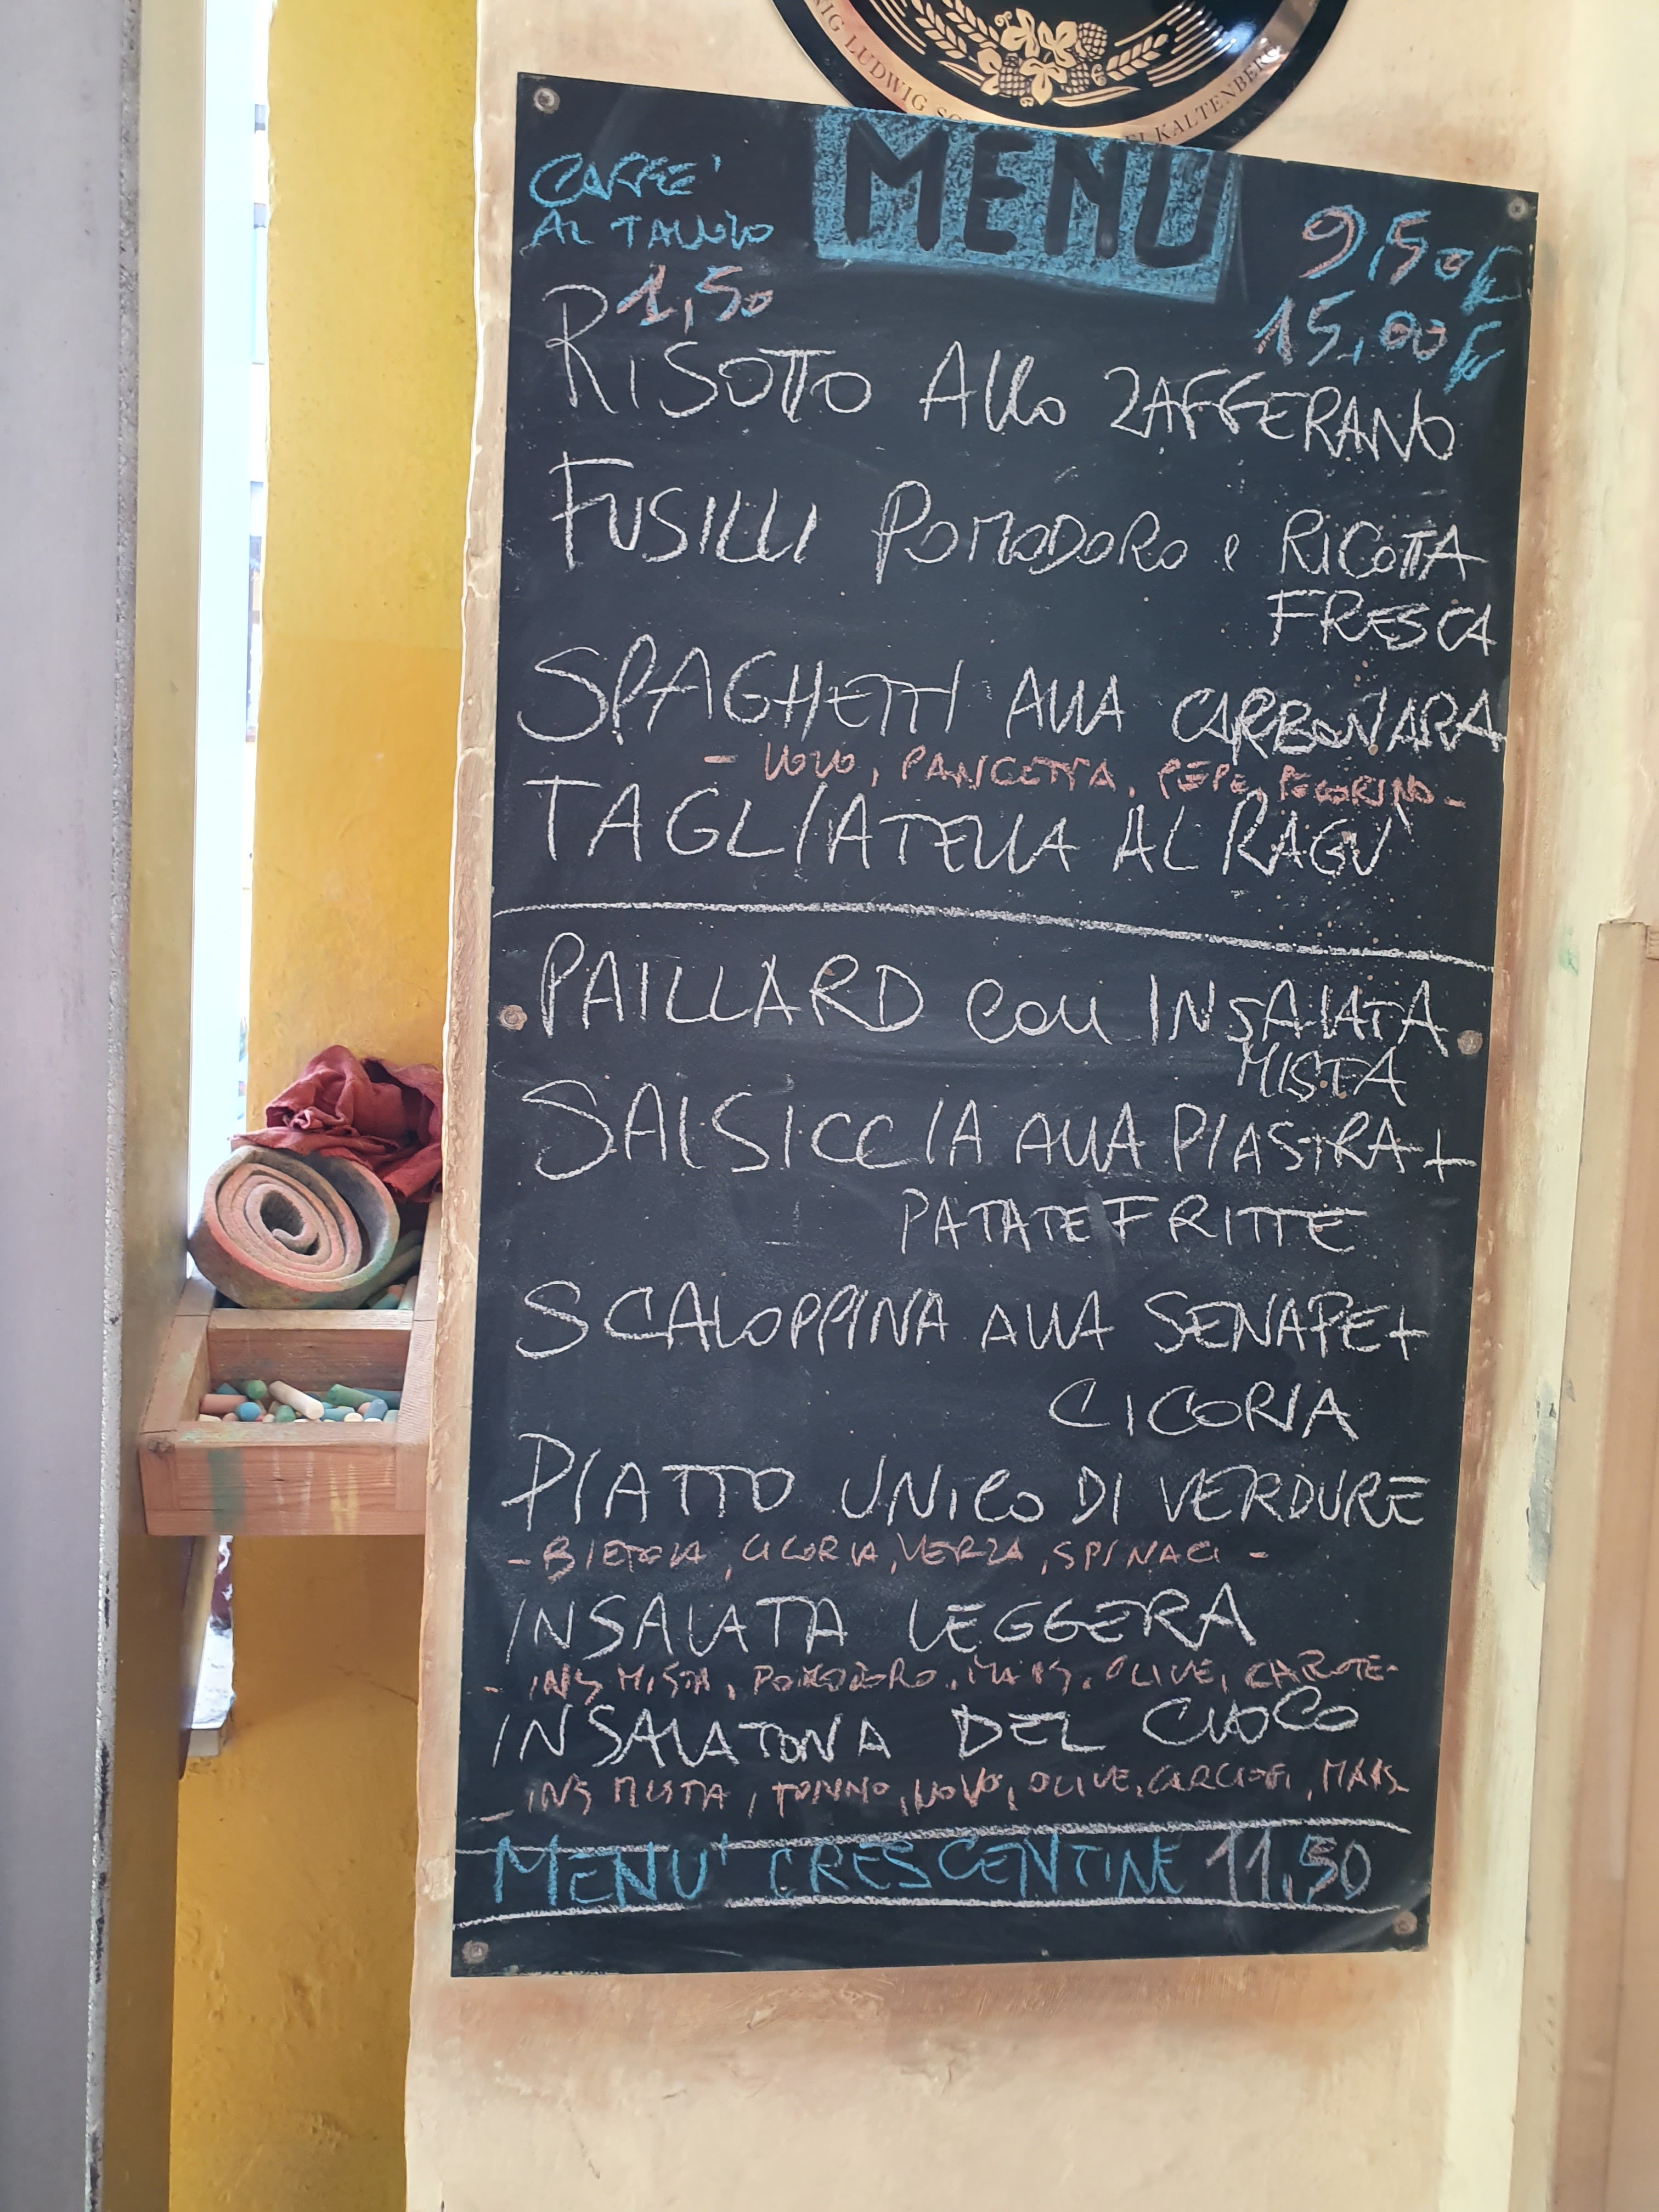 LUDWIG
KALTENBERG
MENU
CAFFE'
AL TAVOLO
1,50
9,50€
15,00€
RISOTTO Allo ZAFFERANO
FUSILLI POMODORO e RICOTTA
FRESCA
SPAGHETTI ALLA CARBONARA
- UOVO, PANCETTA, PEPE, PECORINO -
TAGLIATELLA AL RAGU'
PAILLARD con INSALATA
MISTA
SALSICCIA ALLA PIASTRA +
PATATE FRITTE
SCALOPPINA ALLA SENAPE +
CICORIA
PIATTO UNICO DI VERDURE
- BIETOLA, CICORIA, VERZA, SPINACI -
INSALATA LEGGERA
- INS MISTA, POMODORO, MAIS, OLIVE, CAROTE -
INSALATONA DEL CUOCO
- INS MISTA, TONNO, UOVO, OLIVE, CARCIOFI, MAIS -
MENU' CRESCENTINE 11,50